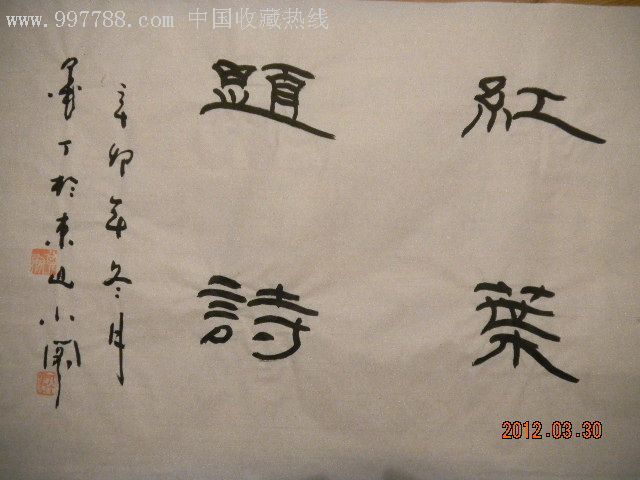 www.997788.com 中国收藏热线
紅葉
題詩
辛卯年冬月
墨丁於東山小閣
2012.03.30